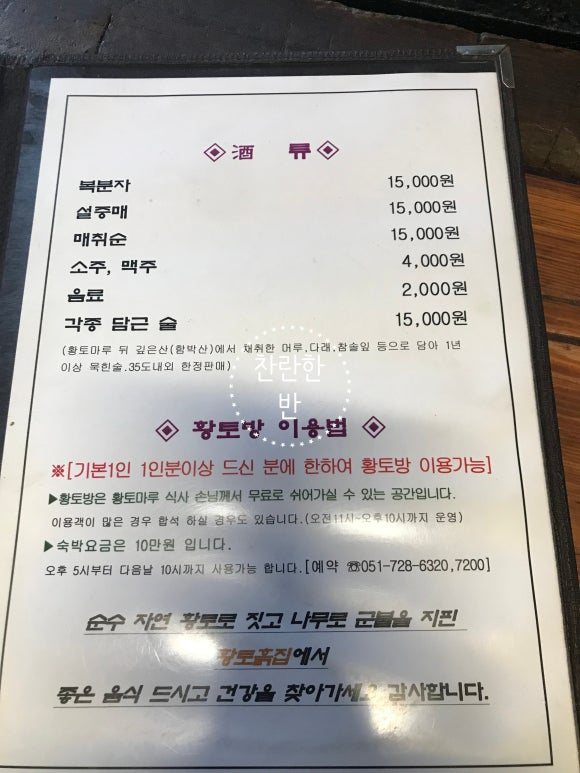 酒 류
복분자 15,000원
설중매 15,000원
매취순 15,000원
소주, 맥주 4,000원
음료 2,000원
각종 담근 술 15,000원
(황토마루 뒤 깊은산(함박산)에서 채취한 머루,다래,참솔잎 등으로 담아 1년
이상 묵힌술.35도내외 한정판매)
찬란한
반
황토방 이용법
※[기본1인 1인분이상 드신 분에 한하여 황토방 이용가능]
▶황토방은 황토마루 식사 손님께서 무료로 쉬어가실 수 있는 공간입니다.
이용객이 많은 경우 합석 하실 경우도 있습니다.(오전11시~오후10시까지 운영)
▶숙박요금은 10만원 입니다.
오후 5시부터 다음날 10시까지 사용가능 합니다.[예약 ☏051-728-6320,7200]
순수 자연 황토로 짓고 나무로 군불을 지핀
황토흙집에서
좋은 음식 드시고 건강을 찾아가세요 감사합니다.